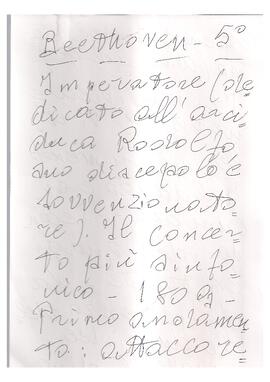 Beethoven - 5°
Imperatore (de=
dicato all'arci=
duca Rodolfo
suo discepolo e
sovvenzionato=
re). Il concer=
to più sinfo=
nico - 1809 -
Primo andamen=
to: attaccare=